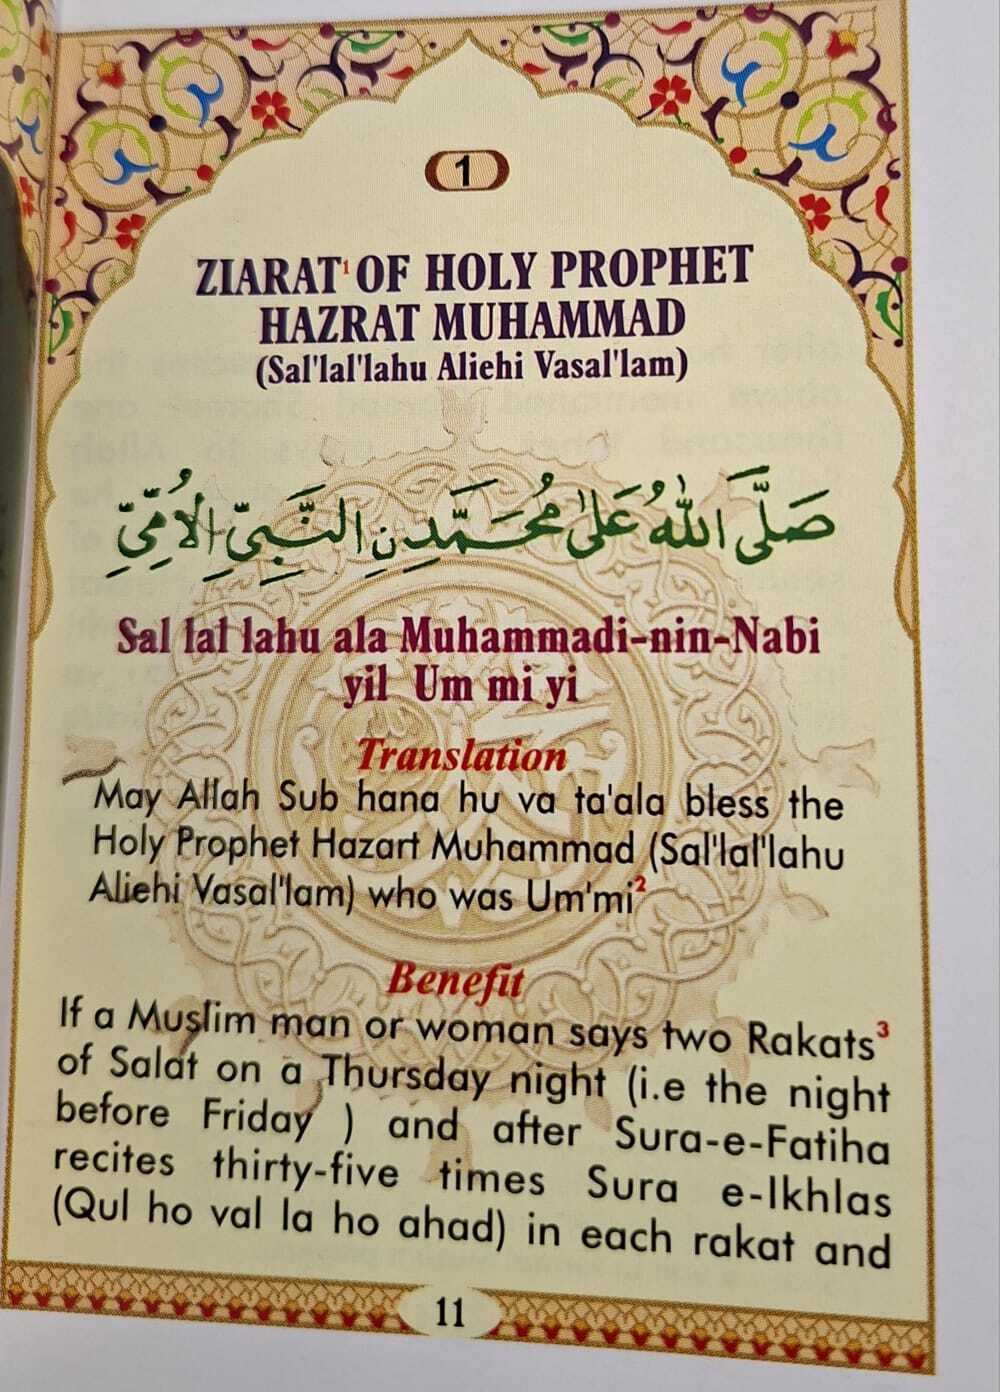 1
ZIARAT¹ OF HOLY PROPHET
HAZRAT MUHAMMAD
(Sal'lal'lahu Aliehi Vasal'lam)
صَلَّى اللّٰهُ عَلٰى مُحَمَّدِ نِ النَّبِيِّ الْاُمِّيِّ
Sal lal lahu ala Muhammadi-nin-Nabi
yil Um mi yi
Translation
May Allah Sub hana hu va ta'ala bless the
Holy Prophet Hazart Muhammad (Sal'lal'lahu
Aliehi Vasal'lam) who was Um'mi²
Benefit
If a Muslim man or woman says two Rakats³
of Salat on a Thursday night (i.e the night
before Friday ) and after Sura-e-Fatiha
recites thirty-five times Sura e-Ikhlas
(Qul ho val la ho ahad) in each rakat and
11